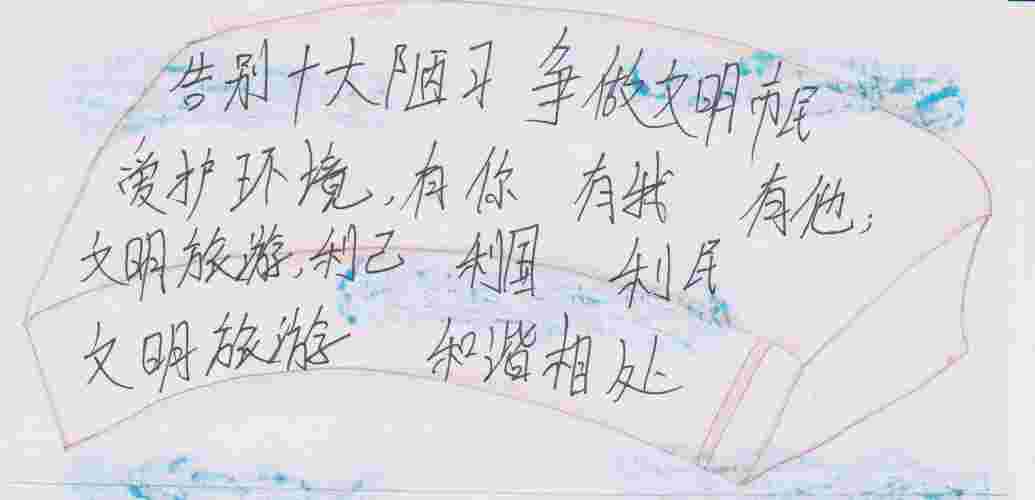 告别十大陋习 争做文明市民
爱护环境,有你 有我 有他;
文明旅游,利己 利国 利民
文明旅游 和谐相处